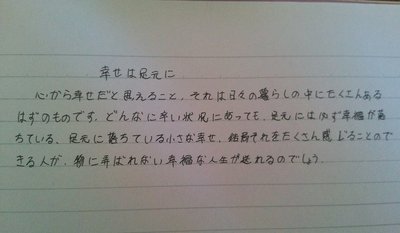 幸せは足元に
心から幸せだと思えること、それは日々の暮らしの中にたくさんある
はずのものです。どんなに辛い状況にあっても、足元には必ず幸福が落
ちている、足元に落ちている小さな幸せ、結局それをたくさん感じることので
きる人が、物に呼ばれない幸福な人生が送れるのでしょう。